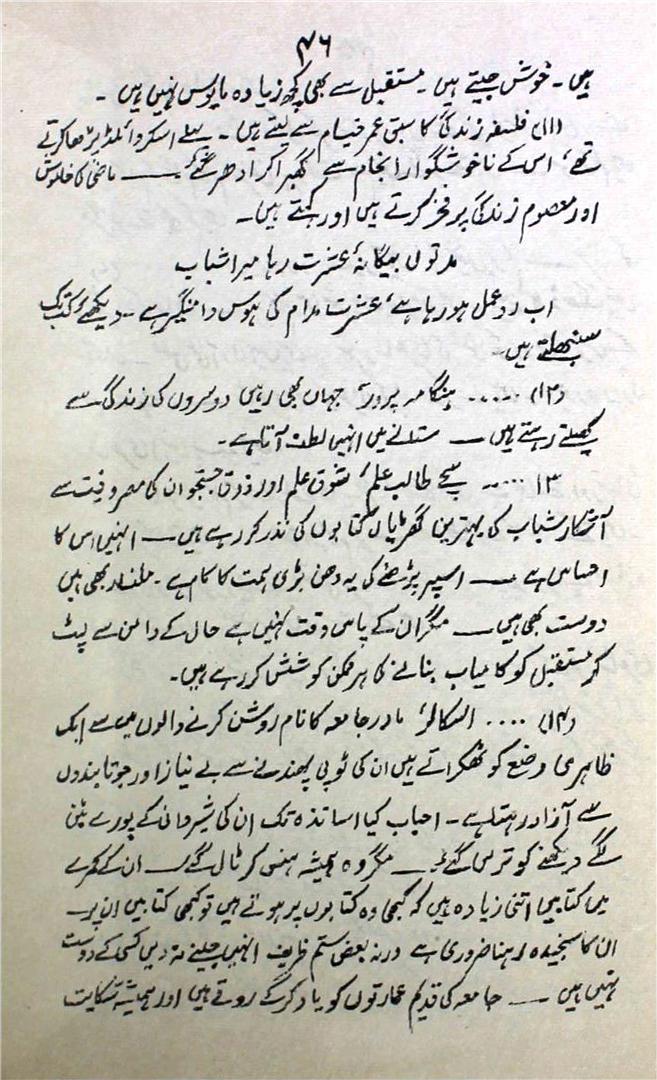 ۴۶
ہیں۔ خوش جیتے ہیں۔ مستقبل سے بھی کچھ زیادہ مایوس نہیں ہیں۔
(۱۱) فلسفہ زندگی کا سبق عمر خیام سے لیتے ہیں۔ پہلے اسکر وائلڈ پڑھا کرتے
تھے، اس کے ناخوشگوار انجام سے گھبرا کر ادھر آ گئے — ماضی کی خاموش
اور معصوم زندگی پر فخر کرتے ہیں اور کہتے ہیں۔
مدتوں بیگانۂ عشرت رہا میرا شباب
اب رد عمل ہو رہا ہے، عشرت مدام کی ہوس دامنگیر ہے۔ دیکھئے کب تک
سنبھلتے ہیں۔
(۱۲) ..... ہنگامہ پرور، جہاں بھی رہیں دوسروں کی زندگی سے
کھیلتے رہتے ہیں — ستانے میں انہیں لطف آتا ہے۔
۱۳ ..... سچے طالب علم، شوق علم اور ذوق جستجو ان کی مصروفیت سے
آشکار شباب کی بہترین گھڑیاں کتابوں کی نذر کر رہے ہیں — انہیں اس کا
احساس ہے — اسپر پڑھنے کی یہ دھن بڑی ہمت کا کام ہے۔ ملنسار بھی ہیں
دوست بھی ہیں — مگر ان کے پاس وقت نہیں ہے حال کے دامن سے لپٹ
کر مستقبل کو کامیاب بنانے کی ہر ممکن کوشش کر رہے ہیں۔
(۱۴) .... اسکالر، مادر جامعہ کا نام روشن کرنے والوں میں سے ایک
ظاہری وضع کو ٹھکراتے ہیں ان کی ٹوپی پھندنے سے بے نیاز اور جوتا بندوں
سے آزاد رہتا ہے۔ احباب کیا اساتذہ تک ان کی شیروانی کے پورے بٹن
لگے دیکھنے کو ترس گئے — مگر وہ ہمیشہ ہنس کر ٹال گئے — ان کے کمرے
میں کتابیں اتنی زیادہ ہیں کہ کبھی وہ کتابوں پر ہوتے ہیں تو کبھی کتابیں ان پر —
ان کا سنجیدہ رہنا ضروری ہے ورنہ بعض ستم ظریف انہیں جینے نہ دیں کسی کے دوست
نہیں ہیں — جامعہ کی قدیم عمارتوں کو یاد کر کے روتے ہیں اور ہمیشہ شکایت